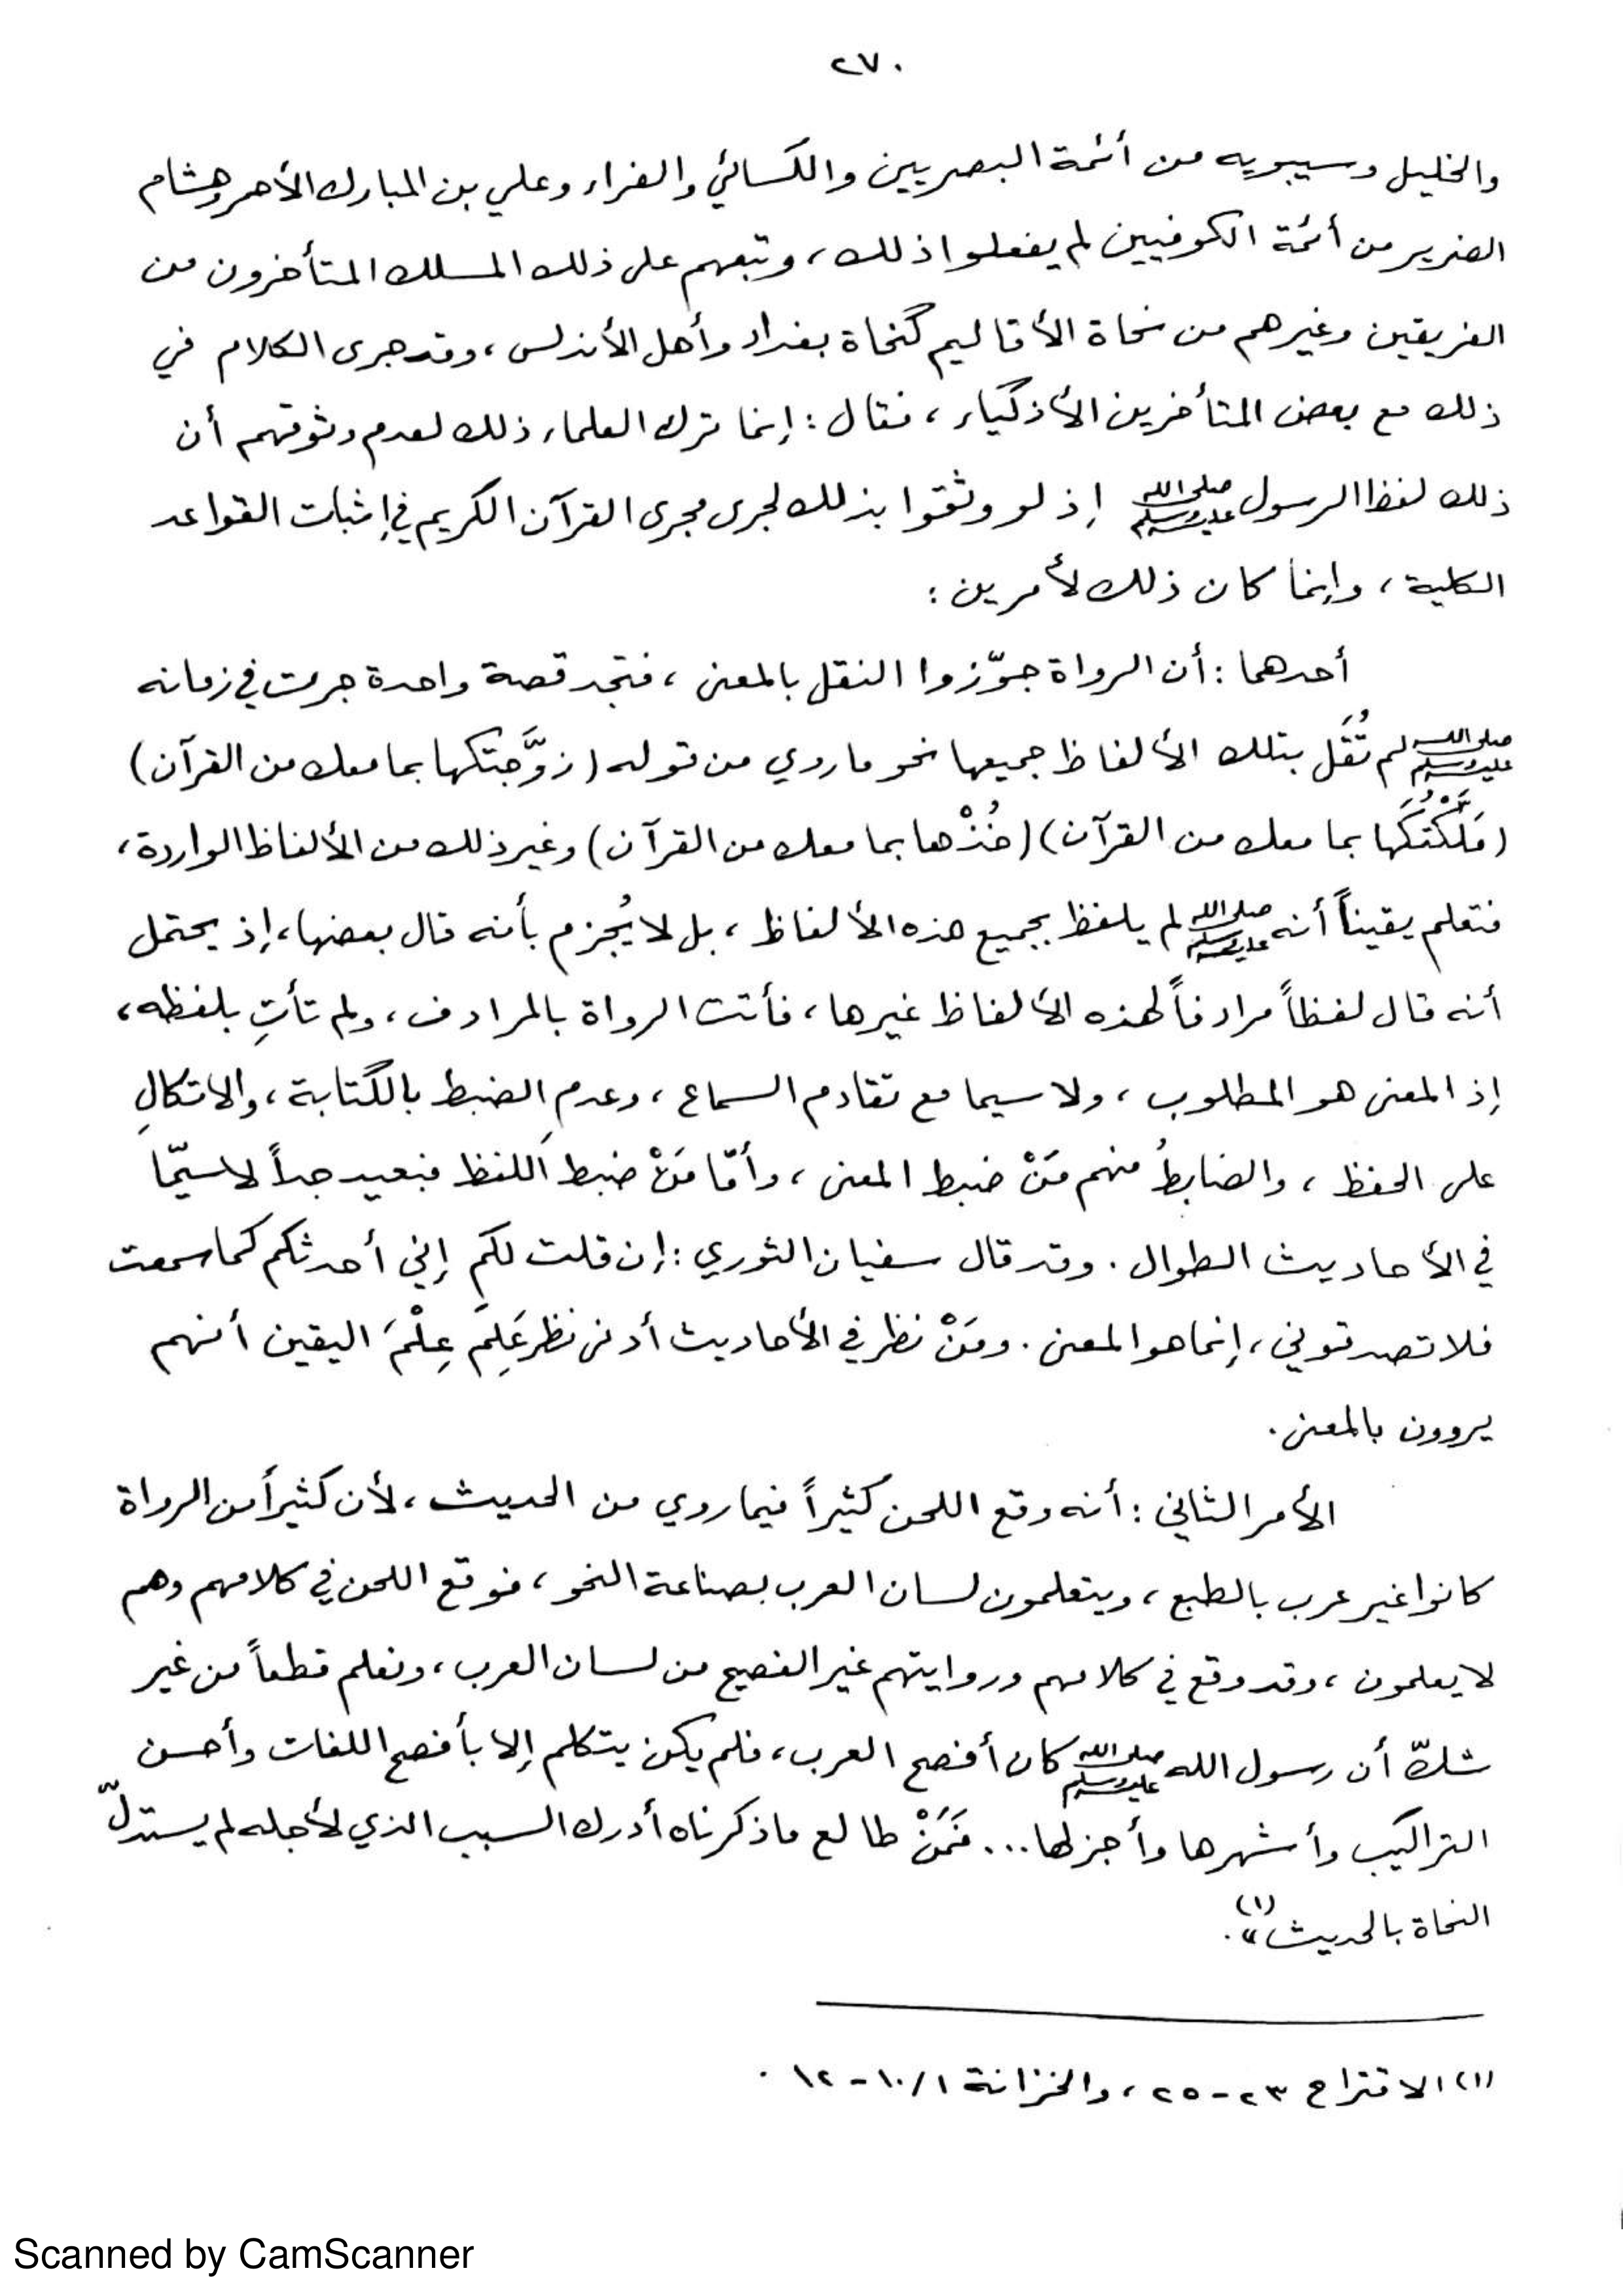 ٢٧٠
والخليل وسيبويه من أئمة البصريين والكسائي والفراء وعلي بن المبارك الأحمر وهشام
الضرير من أئمة الكوفيين لم يفعلوا ذلك، وتبعهم على ذلك المسلك المتأخرون من
الفريقين وغيرهم من نحاة الأقاليم كنحاة بغداد وأهل الأندلس، وقد جرى الكلام في
ذلك مع بعض المتأخرين الأذكياء، فقال: إنما ترك العلماء ذلك لعدم وثوقهم أن
ذلك لفظ الرسول ﷺ إذ لو وثقوا بذلك لجرى مجرى القرآن الكريم في إثبات القواعد
الكلية، وإنما كان ذلك لأمرين:
أحدهما: أن الرواة جوّزوا النقل بالمعنى، فتجد قصة واحدة جرت في زمانه
ﷺ لم تُقَل بتلك الألفاظ جميعها نحو ما روي من قوله (زوَّجتكها بما معك من القرآن)
(مَلَّكْتُكَها بما معك من القرآن) (خُذْها بما معك من القرآن) وغير ذلك من الألفاظ الواردة،
فتعلم يقيناً أنه ﷺ لم يلفظ بجميع هذه الألفاظ، بل لا يُجزم بأنه قال بعضها، إذ يحتمل
أنه قال لفظاً مرادفاً لهذه الألفاظ غيرها، فأتت الرواة بالمرادف، ولم تأتِ بلفظه،
إذ المعنى هو المطلوب، ولا سيما مع تقادم السماع، وعدمِ الضبط بالكتابة، والاتكالِ
على الحفظ، والضابطُ منهم مَنْ ضبط المعنى، وأمّا مَنْ ضبط اللفظ فبعيد جداً لاسيّما
في الأحاديث الطوال. وقد قال سفيان الثوري: إن قلت لكم إني أحدثكم كما سمعت
فلا تصدقوني، إنما هو المعنى. ومَنْ نظر في الأحاديث أدنى نظر عَلِمَ عِلْمَ اليقين أنهم
يروون بالمعنى.
الأمر الثاني: أنه وقع اللحن كثيراً فيما روي من الحديث، لأن كثيراً من الرواة
كانوا غير عرب بالطبع، ويتعلمون لسان العرب بصناعة النحو، فوقع اللحن في كلامهم وهم
لا يعلمون، وقد وقع في كلامهم وروايتهم غير الفصيح من لسان العرب، ونعلم قطعاً من غير
شكّ أن رسول الله ﷺ كان أفصح العرب، فلم يكن يتكلم إلا بأفصح اللغات وأحسن
التراكيب وأشهرها وأجزلها... فَمَنْ طالع ما ذكرناه أدرك السبب الذي لأجله لم يستدلّ
النحاة بالحديث»(١).
(١) الاقتراح ٢٣-٢٥، والخزانة ١٠/١-١٢.
Scanned by CamScanner